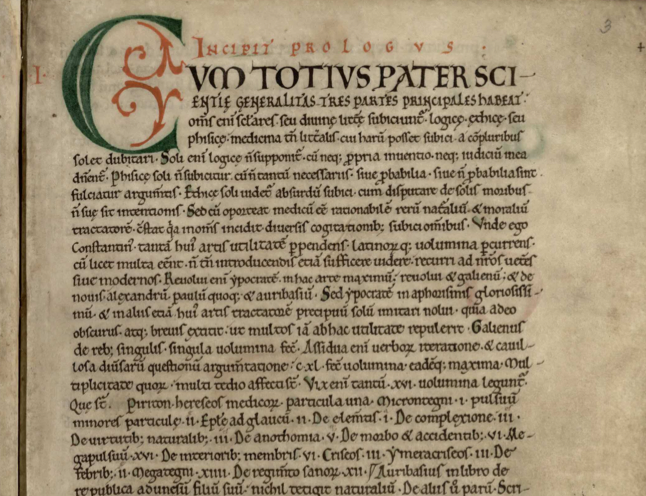 3
INCIPIT PROLOGVS:
I. CVM TOTIVS PATER SCI-
ENTIĘ GENERALITAS TRES PARTES PRINCIPALES HABEAT.
om̄s eni sēlares seu diuinę litt̄ę subiciunt̄. logicę. ethicę. seu
phisicę. medicina tn̄ litt̄alis. cui harū posset subici. a cōpluribus
solet dubitari. Soli eni logicę n̄ supponit̄. cū neq; ꝓpria inuentio. neq; iudiciū in ea
n̄t. Phisicę soli n̄ subicitur. cū n̄ tantū necessariis. siue ꝓbabilia. siue n̄ ꝓbabilia sint
fulciatur argum̄tis. Ethicę soli uidet̄ absurdū subici. cum disputare de solis moribus
n̄ suę sit intentionis. Sed cū oporteat medicū eē rationabilē rerū naturaliū. & moraliū
tractatorē. cstat qa in om̄s incidit. diuersis cogitationib; subici omnibus. Vnde ego
Constantin̄. tantā hui' artis utilitatē ꝑpendens. latinorꝝ q; uolumina ꝑcurrens.
cū licet multa eēnt. n̄ tn̄ introducendis etiā sufficere uiderē. recurri ad nr̄os uet̄es
siue modernos. Reuolui eni ypocratē in hac arte maximū. reuolui & galienū. & de
nouis alexandrū. paulū quoq; & auribasiū. Sed ypocratē in aphorismis gloriosissi-
mū. & in aliis etiā hui' artis tractatorē precipuū solū imitari nolui. quia adeo
obscurus. atq; breuis extitit. ut multos iā ab hac utilitate repulerit. Galienus
de reb; singulis. singula uolumina fec̄. Assidua eni uerborꝝ iteratione. & cauil-
losa diūsarū questionū argum̄tatione. c. xl. fec̄ uolumina. eadēq; maxima. Mul-
tiplicitate quorꝝ. multi tedio affecti st̄. Vix eni tantū. xvi. uolumina legunt̄.
Quę st̄. Piriton. hereseos medicorꝝ. particula una. Microntegni. i. pulsuū
minores particulę. ii. Ep̄łę ad glaucū. ii. De elem̄tis. i. De complexione. iii.
De uirtutib; naturalib;. iii. De anothomia. v. De morbo & accidentib;. vi. Me-
gapulsuū. xvi. De interiorib; membris. vi. Criseos. iii. Ymeracriseos. iii. De
febrib;. ii. Megategni. xiiii. De regim̄to sanorꝝ. xii. Auribasius in libro de
re publica ad unesū filiū suū. nichil tetigit naturaliū. De aliis ū parū. Scri-